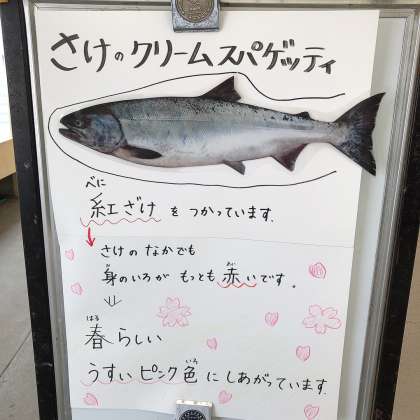 さけのクリームスパゲッティ
べに
紅ざけをつかっています.
さけのなかでも
身のいろがもっとも赤いです。
あか
春らしい
はる
うすいピンク色にしあがっています.
いろ